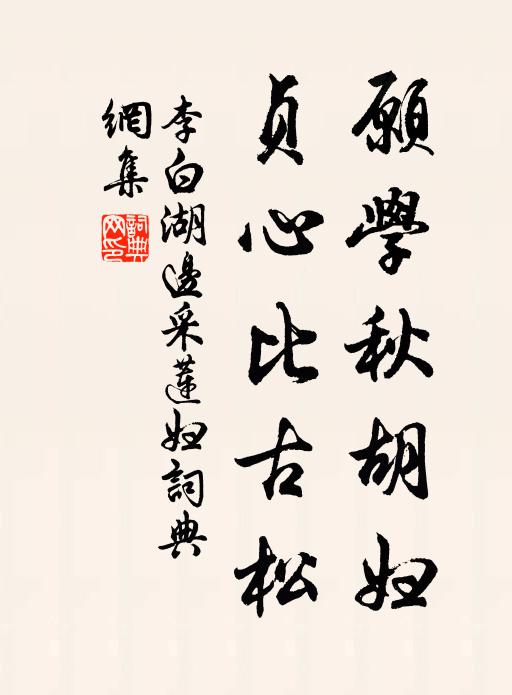 願學秋胡婦
貞心比古松
李白湖邊采蓮婦詞典
網集
詞典
网印